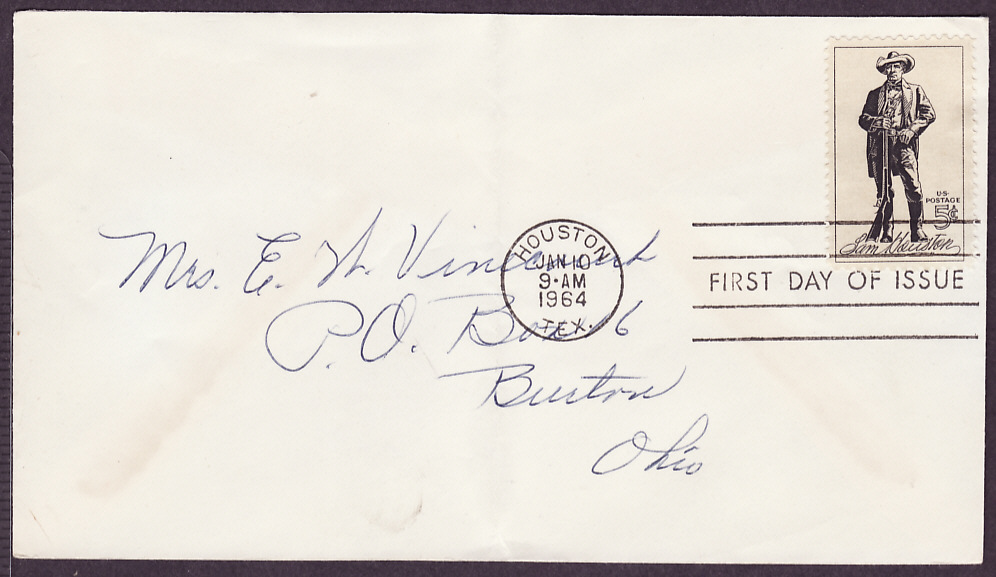 U.S.
POSTAGE
5¢
Sam Houston
HOUSTON
JAN 10
9·AM
1964
TEX.
FIRST DAY OF ISSUE
Mrs. E. W.
P.O. Box 6
Burton
Ohio